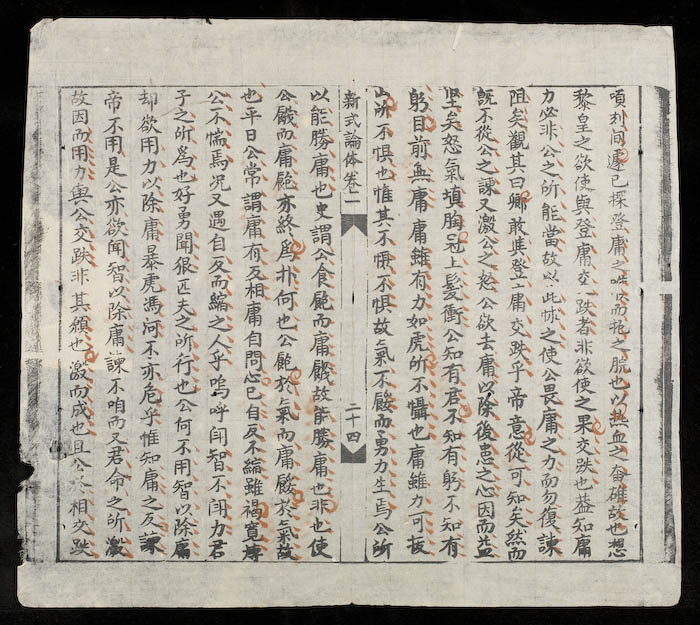 頃刻间遽已探登庸之咙而抱之脱也以热血之奋雄故也想
黎皇之欲使與登庸交跌者非欲使之果交跌也蓋知庸
力必非公之所能當故以此怵之使公畏庸之力而勿復諫
阻矣觀其曰卿敢進登庸交跌乎帝意從可知矣然而
既不從公之諫又激公之怒公欲去庸以除後患之心因而益
坚矣怒氣填胸冠上髮衝公知有君不知有躬不知有
躬目前無庸庸雖有力如虎所不懾也庸雖力可拔
山所不惧也惟其不懾不惧故氣不餒而勇力生焉公所
新式論体卷一
二十四
以能勝庸也史謂公食飽而庸餓故能勝庸也非也使
公餓而庸飽亦終爲扑何也公飽於氣而庸餒於氣故
也平日公常謂庸有反相庸自問心已自反不縮雖褐寬博
公不惴焉况又遇自反而縮之人乎嗚呼闻智不闻力君
子之所爲也好勇聞狠匹夫之所行也公何不用智以除庸
却欲用力以除庸暴虎馮河不亦危乎惟知庸之反諫
帝不用是公亦欲闻智以除庸諫不咱而又君命之所激
故因而用力與公交跌非其願也激而成也且公於相交跌